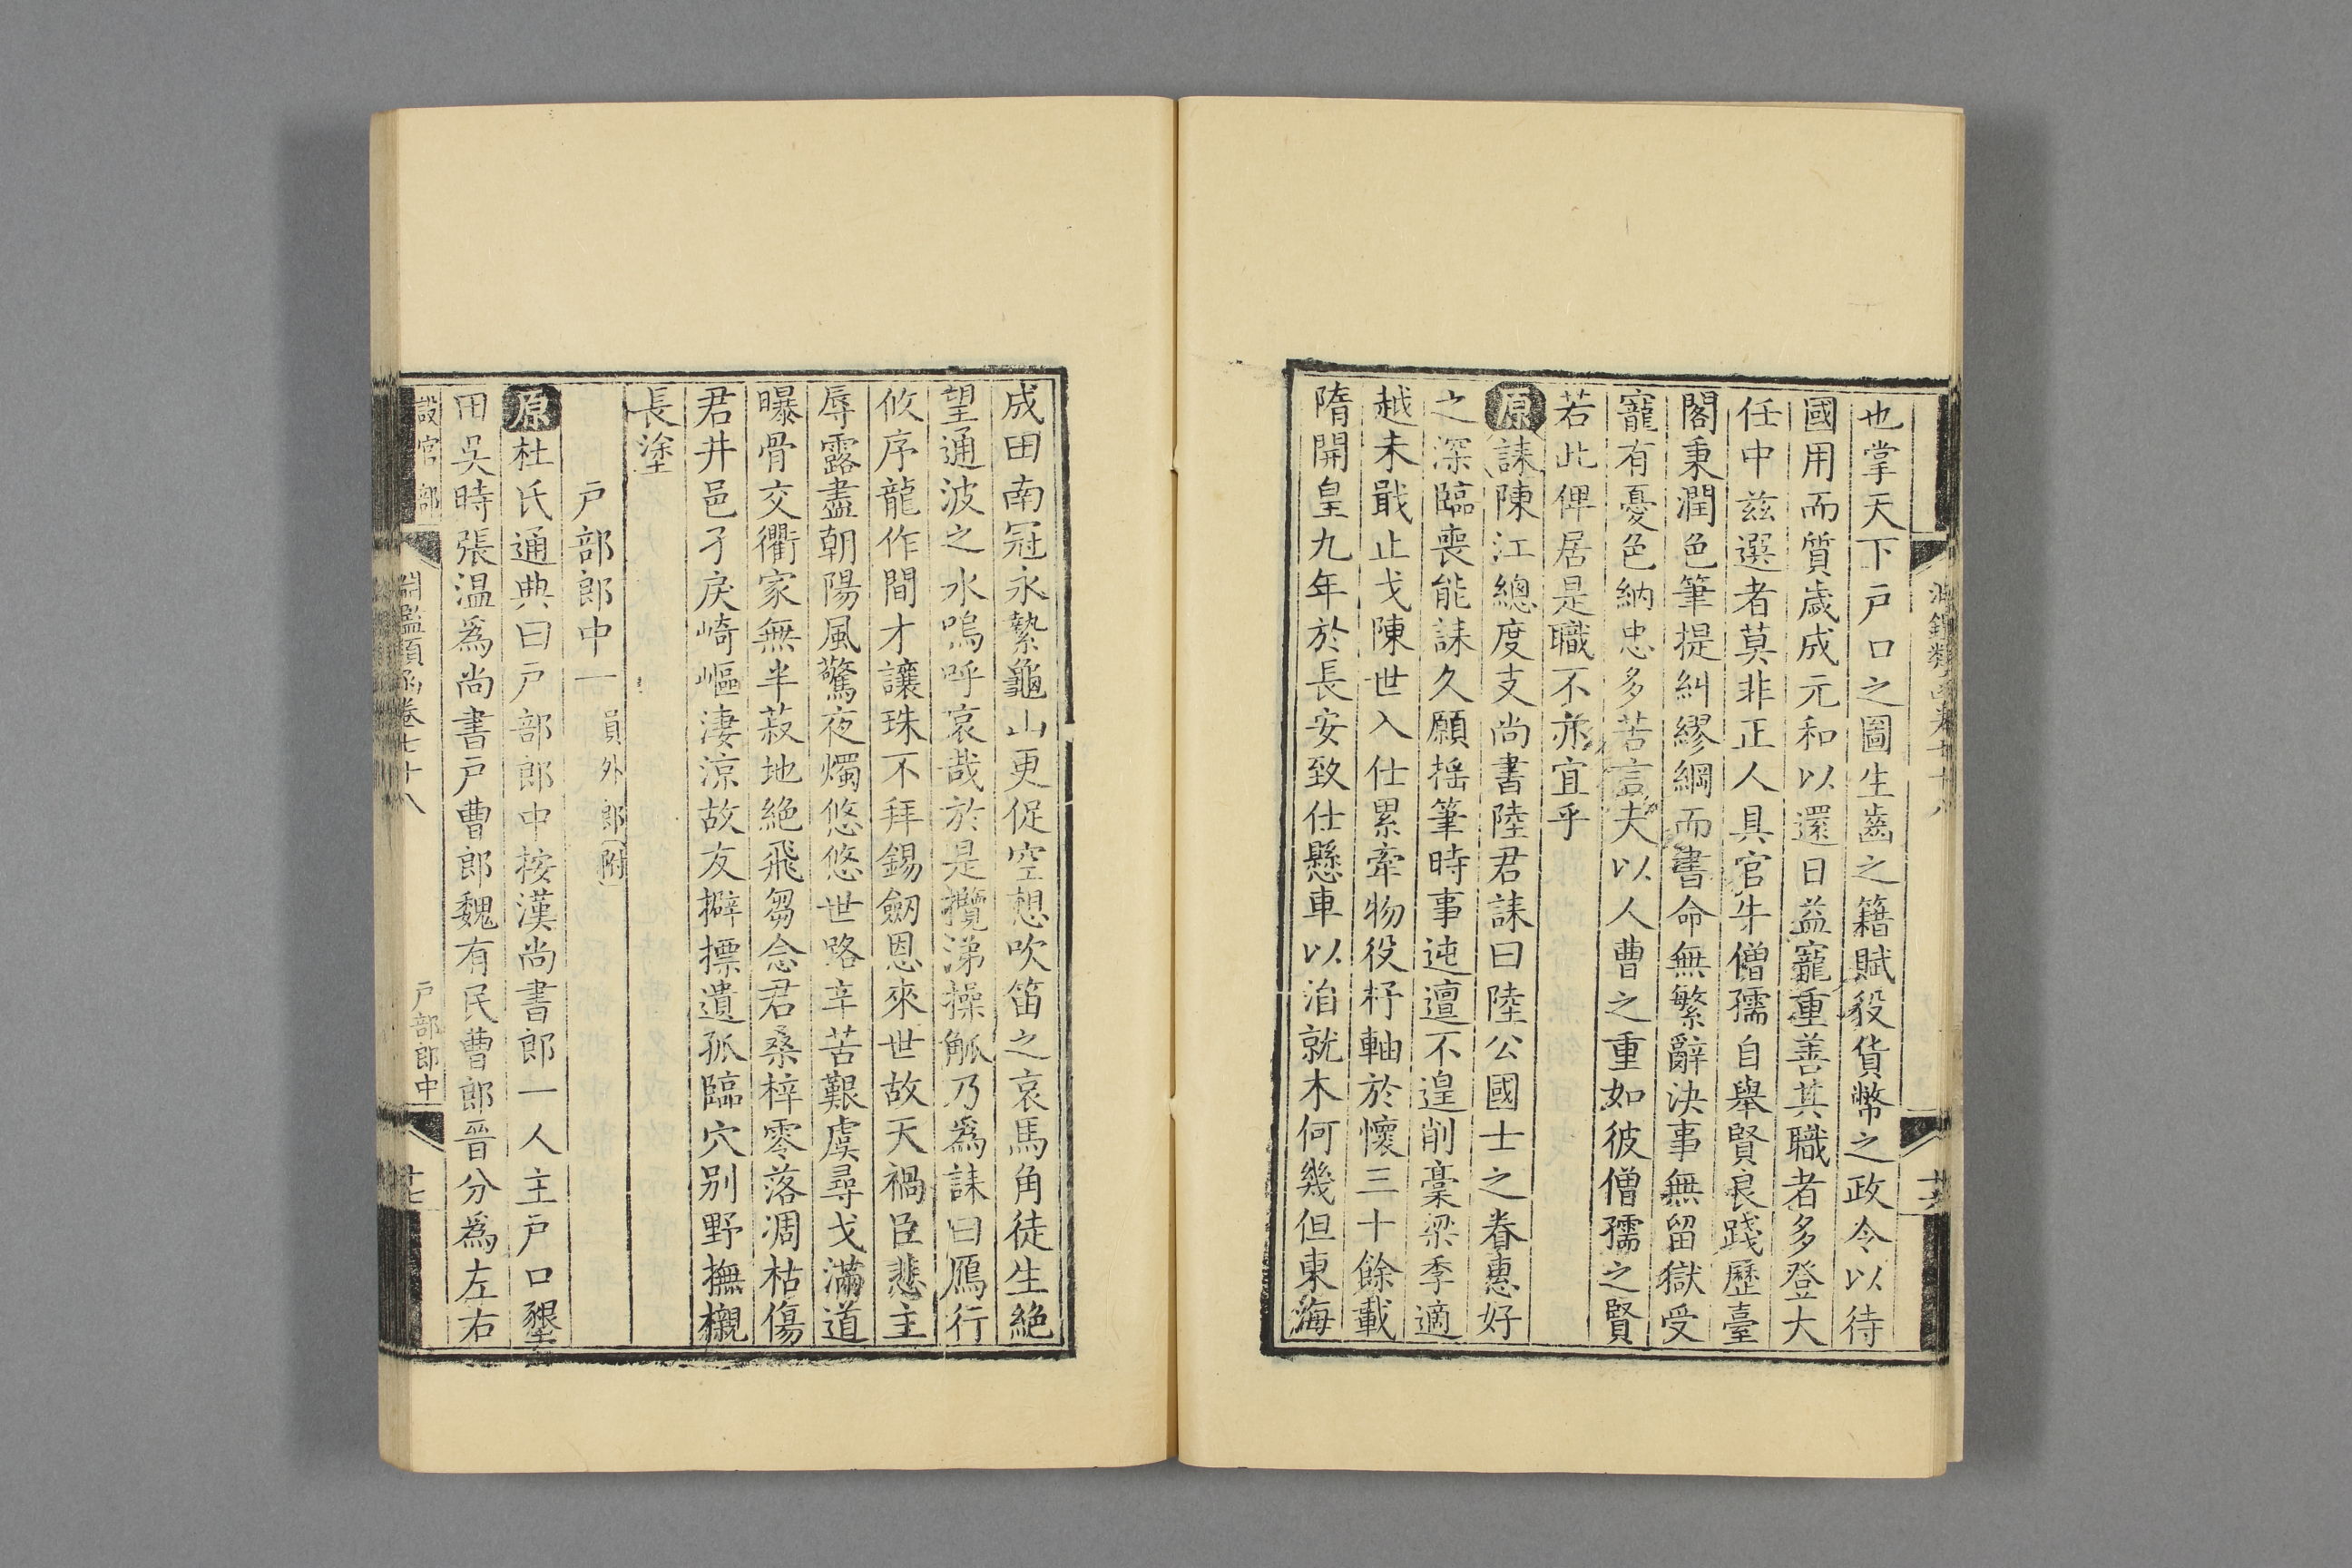 也掌天下戸口之圖生齒之籍賦稅貨幣之政令以待
國用而質歳成元和以還日益寵重善其職者多登大
任中兹選者莫非正人具官牛僧孺自舉賢良踐歷臺
閣秉潤色筆提糾繆綱而書命無繁辭決事無留獄受
寵有憂色納忠多苦言夫以人曹之重如彼僧孺之賢
若此俾居是職不亦宜乎
原誄陳江總度支尚書陸君誄曰陸公國士之眷惠好
之深臨喪能誄久願搖筆時事迍邅不遑削稾梁季適
越未戢止戈陳世入仕累牽物役杼軸於懷三十餘載
隋開皇九年於長安致仕懸車以洎就木何幾但東海
成田南冠永縶龜山更促空想吹笛之哀馬角徒生絶
望通波之水嗚呼哀哉於是攬涕操觚乃爲誄曰鴈行
攸序龍作間才讓珠不拜錫劒恩來世故天禍臣悲主
辱露盡朝陽風驚夜燭悠悠世路辛苦艱虞尋戈滿道
曝骨交衢家無半菽地絶飛芻念君桑梓零落凋枯傷
君井邑孑戾崎嶇淒涼故友擗摽遺孤臨穴别野撫櫬
長塗
戸部郎中一員外郎附
原杜氏通典曰戸部郎中按漢尚書郎一人主戸口墾
田吳時張温爲尚書戸曹郎魏有民曹郎晉分爲左右
設官部 淵鑑類函卷七十八 戸部郎中 廿七